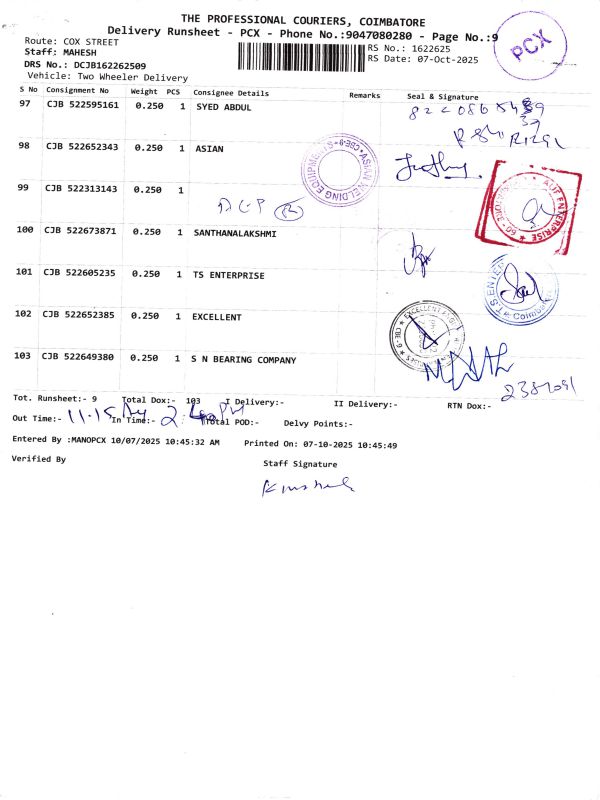 THE PROFESSIONAL COURIERS, COIMBATORE
Delivery Runsheet - PCX - Phone No.:9047080280 - Page No.:9
PCX
Route: COX STREET
RS No.: 1622625
Staff: MAHESH
RS Date: 07-Oct-2025
DRS No.: DCJB162262509
Vehicle: Two Wheeler Delivery
S No Consignment No Weight PCS Consignee Details Remarks Seal & Signature
97 CJB 522595161 0.250 1 SYED ABDUL
98 CJB 522652343 0.250 1 ASIAN
ASIAN WELDING EQUIPMENTS
99 CJB 522313143 0.250 1
100 CJB 522673871 0.250 1 SANTHANALAKSHMI
101 CJB 522605235 0.250 1 TS ENTERPRISE
102 CJB 522652385 0.250 1 EXCELLENT
103 CJB 522649380 0.250 1 S N BEARING COMPANY
Tot. Runsheet:- 9 Total Dox:- 103 I Delivery:- II Delivery:- RTN Dox:-
Out Time:- 11.15 In Time:- 2 Total POD:- Delvy Points:-
Entered By :MANOPCX 10/07/2025 10:45:32 AM Printed On: 07-10-2025 10:45:49
Verified By
Staff Signature